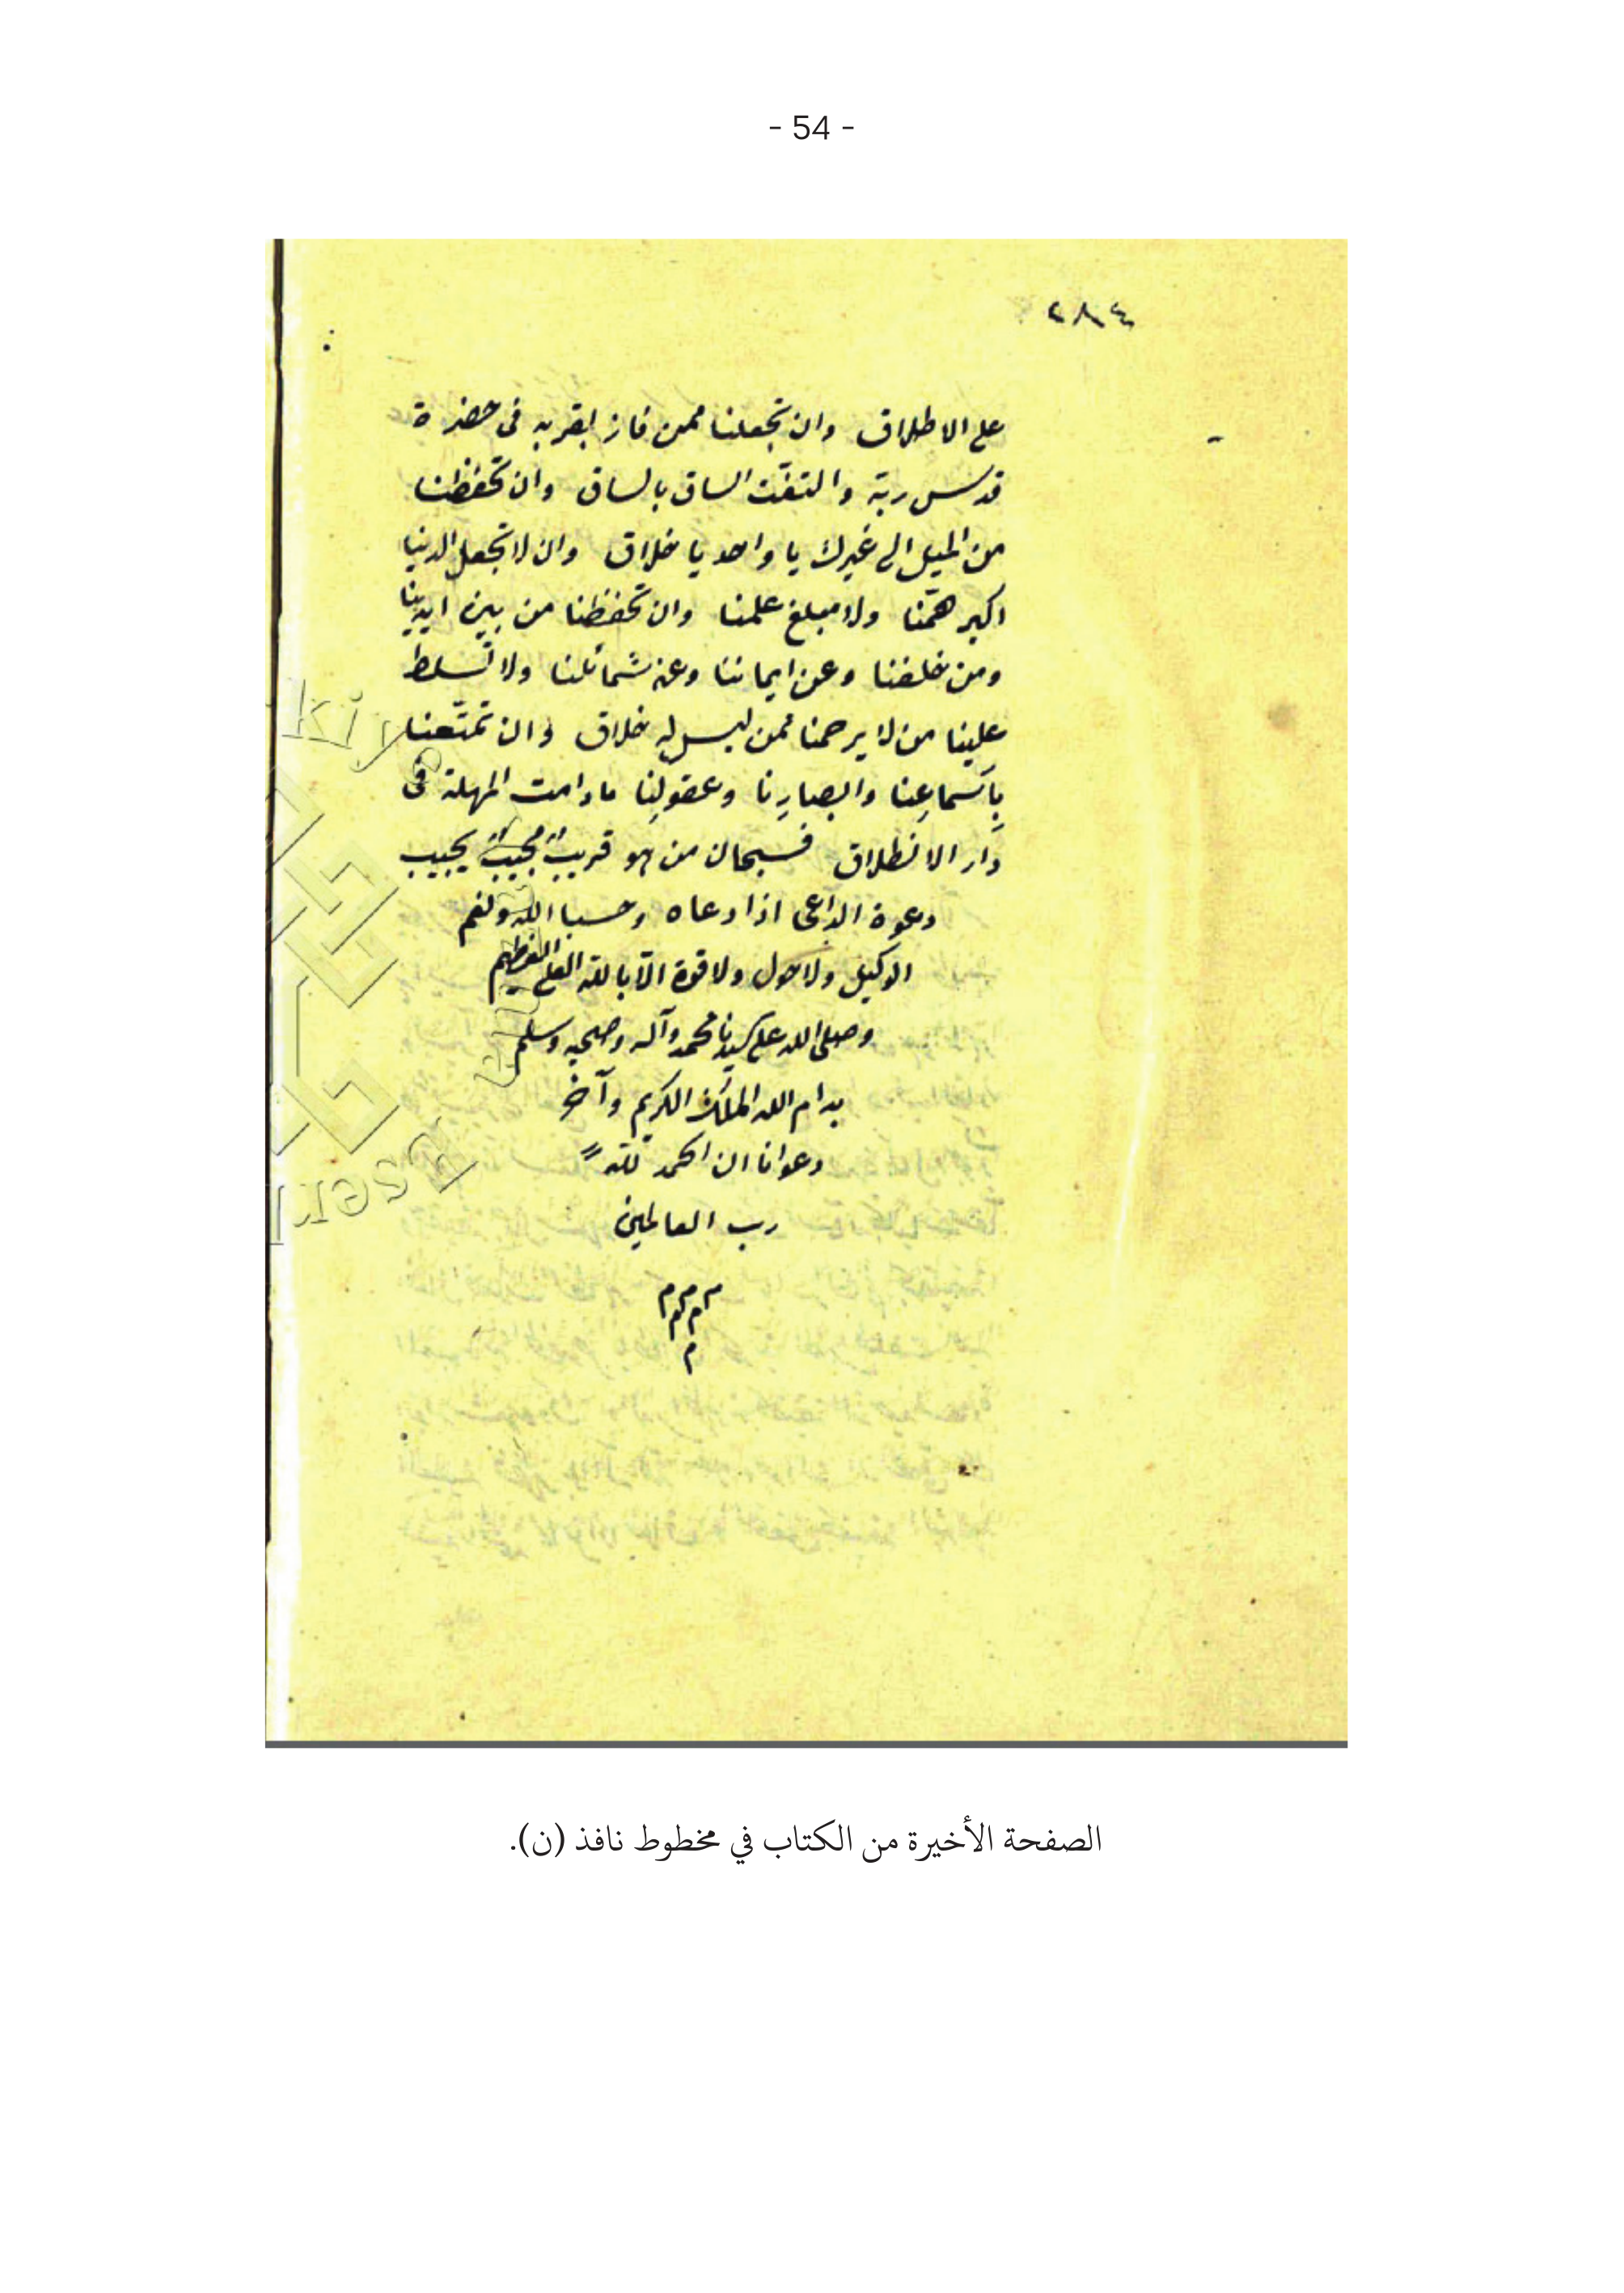 - 54 -
٢٨٤
على الاطلاق وان تجعلنا ممن فاز بقربه فى حضرة
قدس ربّه والتفّت الساق بالساق وان تحفظنا
من الميل الى غيرك يا واحد يا خلاق وان لا تجعل الدنيا
اكبر همّنا ولا مبلغ علمنا وان تحفظنا من بين ايدينا
ومن خلفنا وعن ايماننا وعن شمائلنا ولا تسلط
علينا من لا يرحمنا ممن ليس له خلاق وان تمتّعنا
بِاَسماعِنا وابصارِنا وعقولِنا مادامت المهلة فى
دَار الانطلاق فسبحان من هو قريبٌ مجيبٌ يجيب
دعوة الداعى اذا دعاه وحسبنا الله ونعم
الوكيل ولا حول ولا قوة الّا بالله العلى العظيم
وصلى الله على سيدنا محمد وآله وصحبه وسلم
الله الملك الكريم وآخر
دعوانا ان الحمد لله
رب العالمين
م م م
م م
م
الصفحة الأخيرة من الكتاب في مخطوط نافذ (ن).